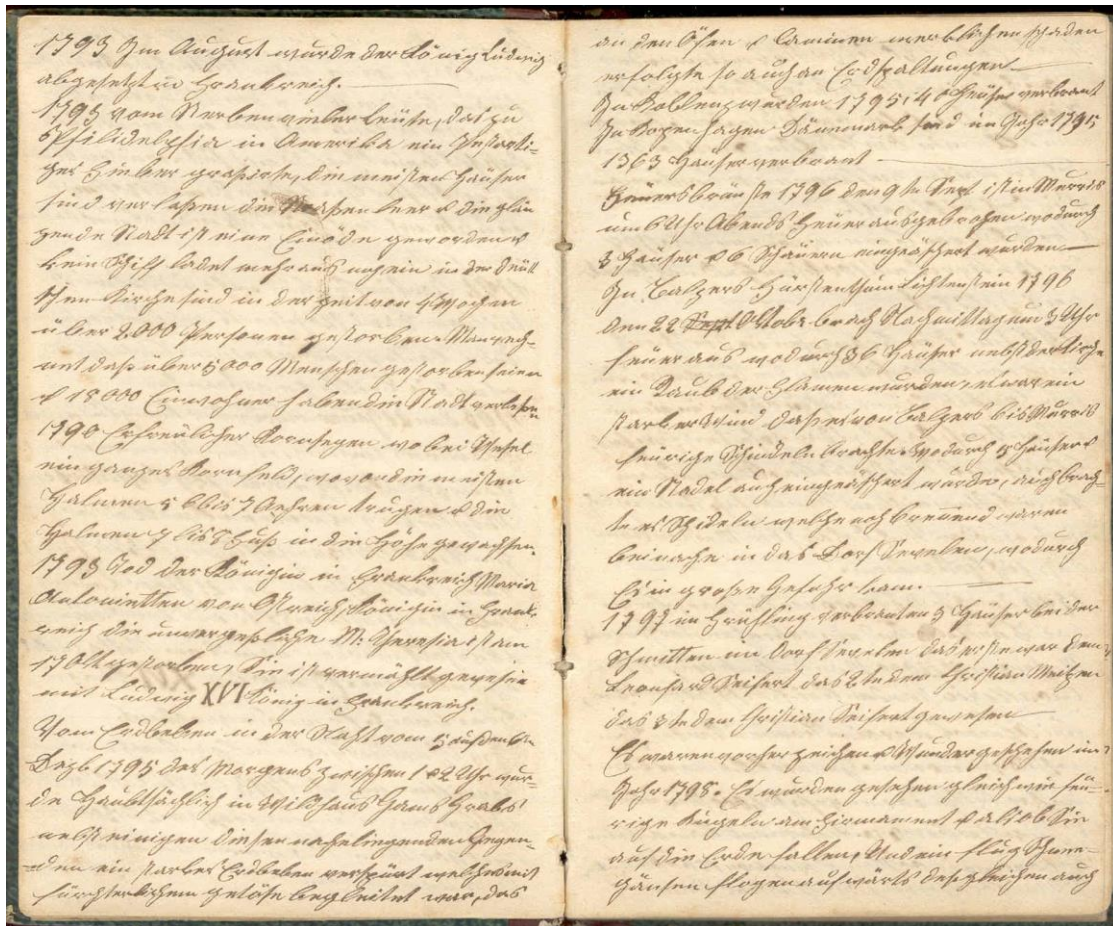 1793 Im August wurde der König Ludwig
abgesetzt in Frankreich.
1793 vom Sterben vieler Leüte, das zu
Philidelphia in Amerika ein Pestarti-
ges Fieber grasirte, die meisten Häuser
sind verlaßen die Straßen leer & die glän
zende Stadt ist eine Einöde geworden &
kein Schiff ladet mehr aus noch ein in der Deüt
schen Kirche sind in der Zeit von 4 Wochen
über 2000 Personen gestorben. Man rech-
net daß über 5000 Menschen gestorben seien
& 18000 Einwohner haben die Stadt verlaßen
1790 Erfreulicher Kornsegen wo bei Wesel
ein ganzes Kornfeld, wovor die meisten
Halmen 5 6 bis 7 Aehren trugen & die
Halmen 7 bis 8 Fuß in die Höhe gewachsen.
1793 Tod der Königin in Frankreich Maria
Antonietten von Östreich, Königin in Frank-
reich die unvergeßliche M: Theresia ist am
gestorben, Sie ist vermählt gewesen
mit Ludwig XVI König in Frankreich.
Vom Erdbeben in der Nacht vom 5 auf den 6ten
Dezb 1795 des Morgens zwischen 1 & 2 Uhr wur-
de Haubtsächlich in Wildhaus Gams Grabs
nebst einigen diesen naheliegenden Gegen-
=den ein starkes Erdbeben verspürt welches mit
fürchterlichem getöse begleitet war, das
an den Öfen & Caminen merklichen schaden
erfolgte so auch an Erdspaltungen
In Koblenz werden 1795 Heüser verbrant
In Kopenhagen Dänemark sind im Jahr 1795
1363 Häuser verbrant
Feuersbrünste 1796 den 9te Sept ist in Murris
um 6 Uhr Abends Feuer ausgebrochen wodurch
3 Häuser & 6 Scheüern eingeäschert wurden
In Balzers Fürstenthum Lichtenstein 1796
den 22 Oktobr brach Nachmittag um 3 Uhr
feuer aus wodurch 36 Häuser nebst der Kirche
ein Raub der Flamen wurden, es war ein
starker Wind daß es von Balzers bis Murris
feurige Schindeln brachte wodurch Häuser &
ein Stadel auch eingeäschert wurden, auch brach-
te es Schideln welche noch brennend waren
beinache in das Dorf Sevelen, wodurch
Es in große Gefahr kam.
1797 im Frühling verbranten 3 Häuser bei der
Schmitten im Dorf Sevelen das erste war dem
Leonhard Seifert das 2te dem Christian
das 3te dem Christian Seifert gewesen
Es waren vorher zeichen & Wunder geschehen im
Jahr 1798. Es wurden gesehen gleich wie feü-
rige Kugeln am Firmament & als ob Sie
auf die Erde fallen, Und ein flug Schnee-
gänsen flogen aufwärts desgleichen auch